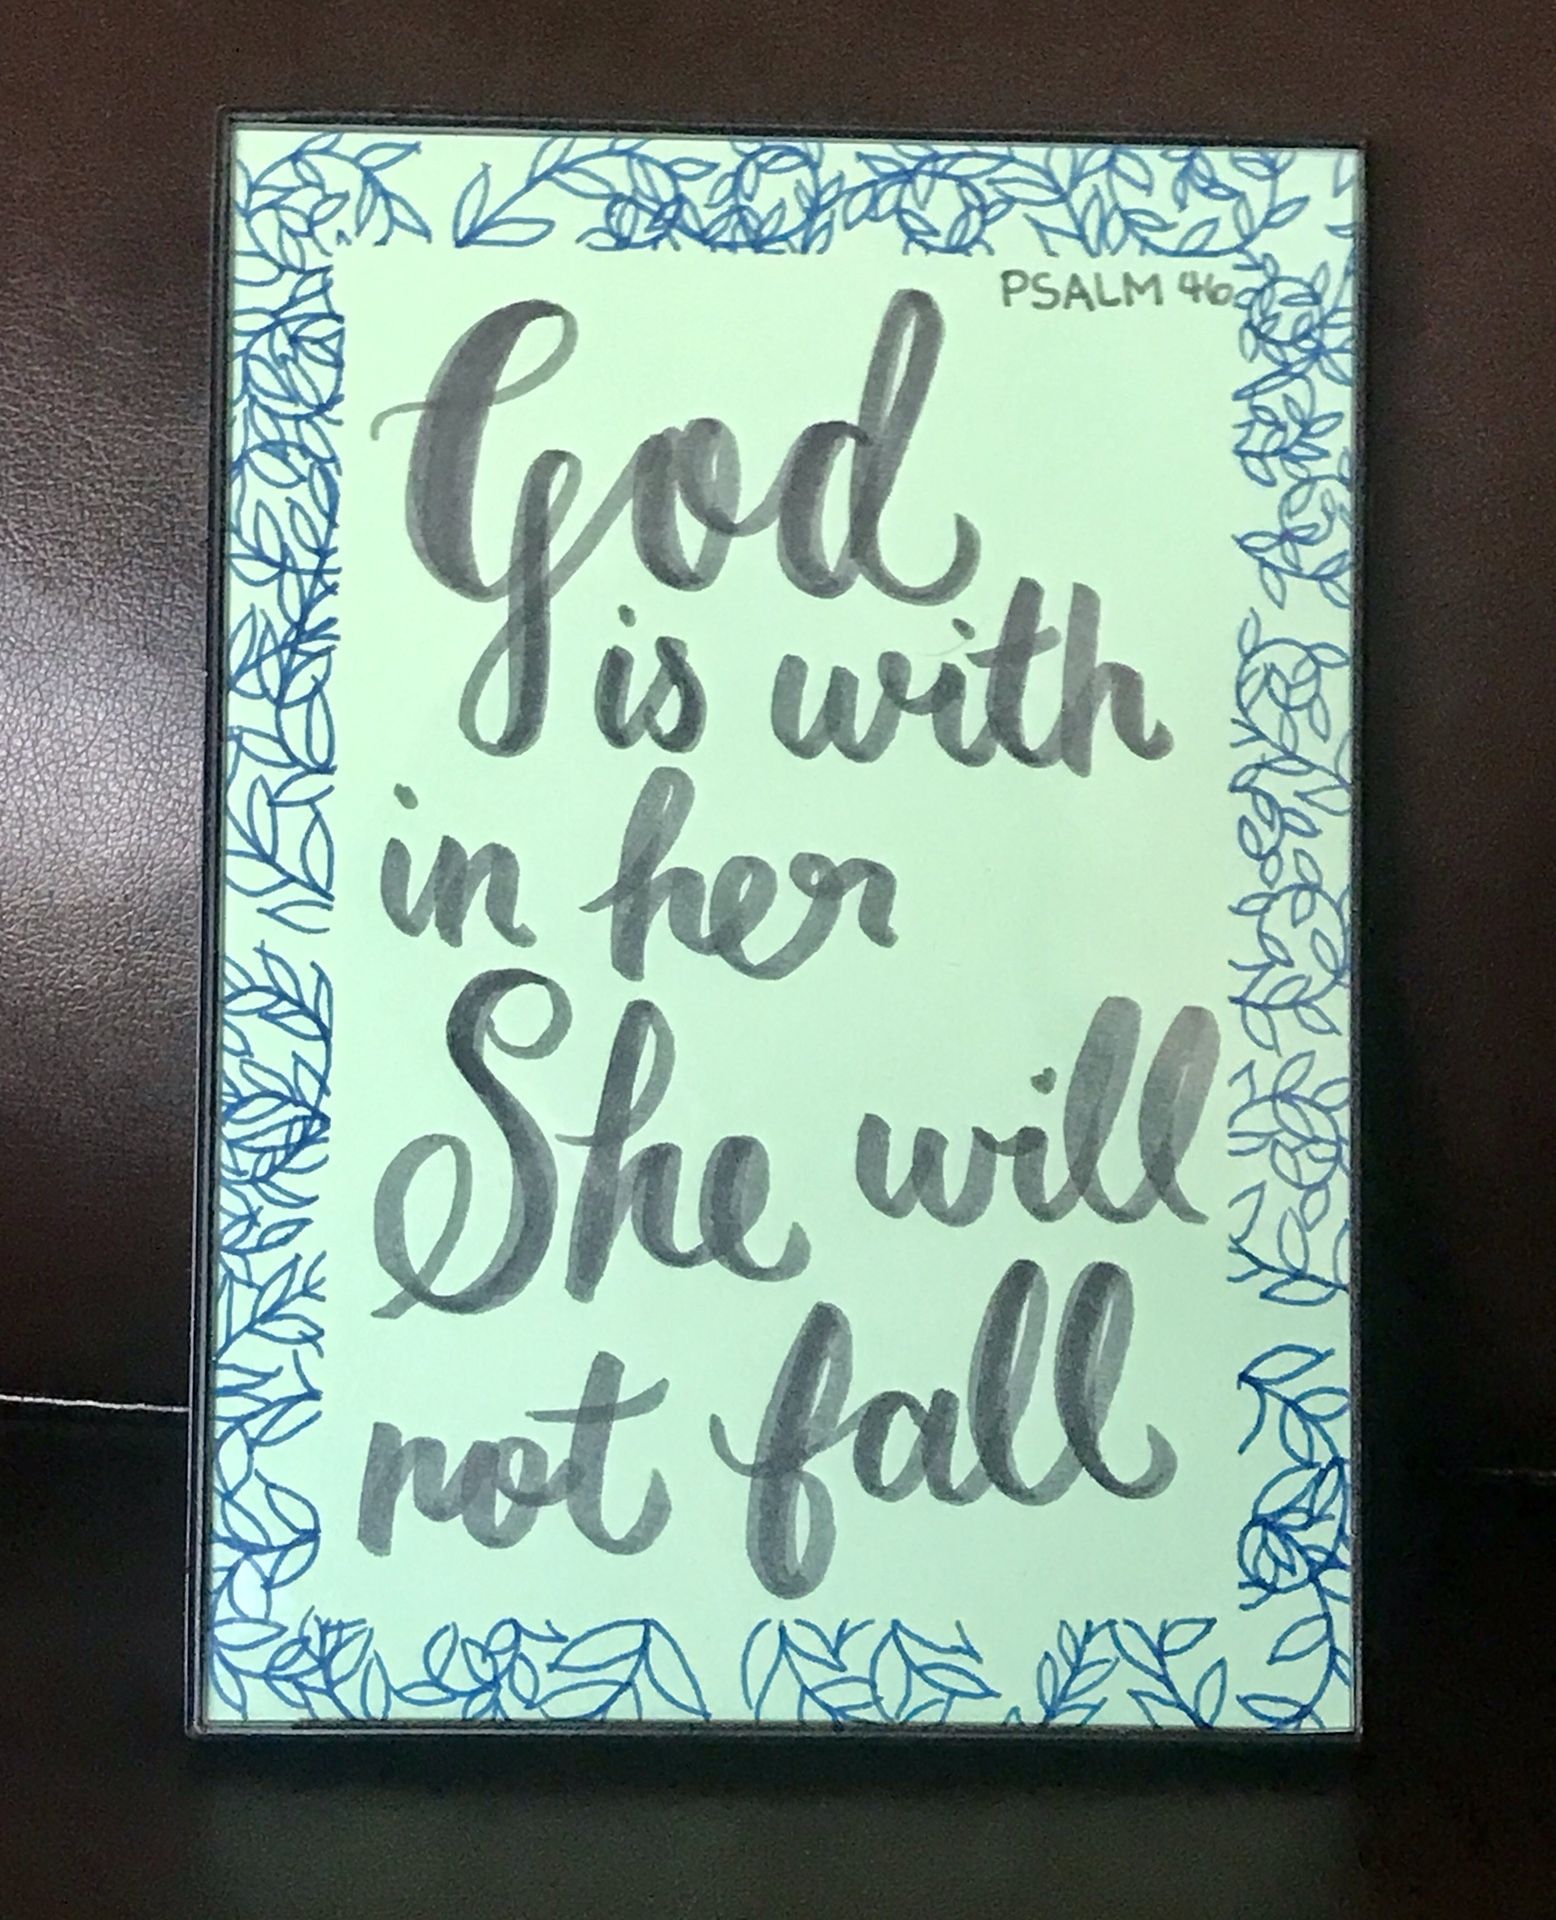 PSALM 46
God
is with
in her
She will
not fall